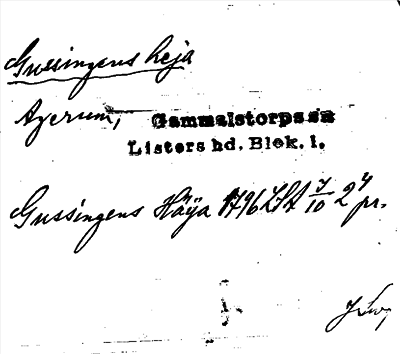 Gussingens heja
Agerum, Gammalstorps sn
Listers hd. Blek. l.
Gussingens Häya 1796 LSA 7/10 24 pr.